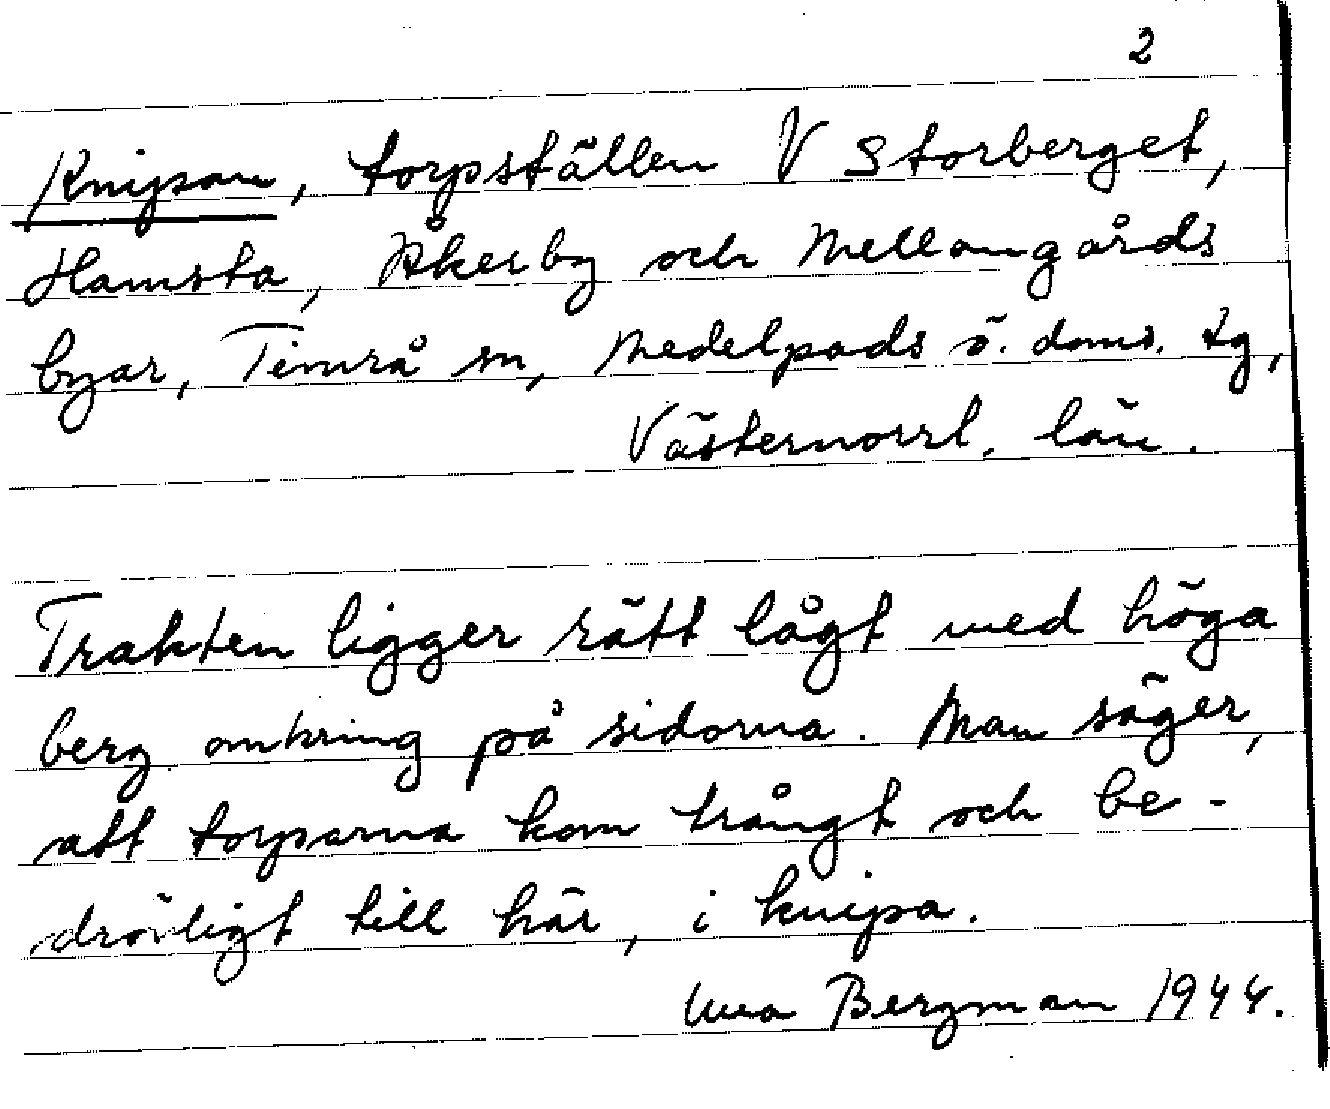 2
Knipan, torpställen V Storberget,
Hamsta, Åkerby och Mellangårds
byar, Timrå sn, Medelpads ö. doms. tg,
Västernorrl. län.
Trakten ligger rätt lågt med höga
berg omkring på sidorna. Man säger,
att torparna kom trångt och be-
drövligt till här, i knipa.
Bergman 1944.